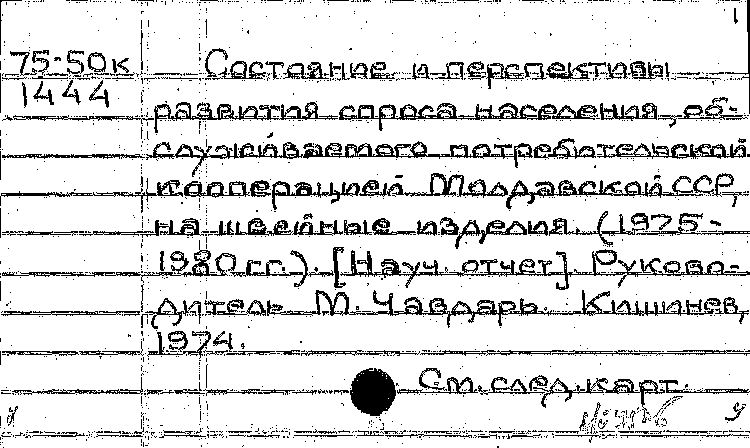 1
75:50к
1444
Состояние и перспективы
развития спроса населения, об-
служиваемого потребительской
кооперацией Молдавской ССР,
на швейные изделия. (1975-
1980 гг.). [Науч. отчет]. Руково-
дитель М. Чавдарь. Кишинев,
1974.
См. след. карт.